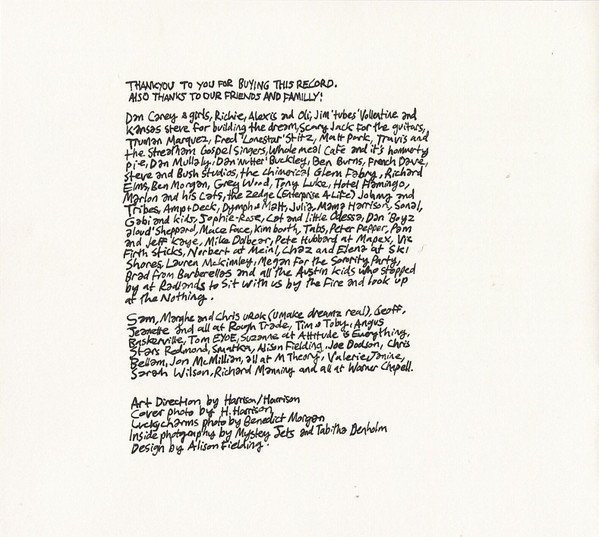 THANKYOU TO YOU FOR BUYING THIS RECORD.
ALSO THANKS TO OUR FRIENDS AND FAMILLY!
Dan Carey & girls, Richie, Alexis and Oli, Jim 'tubes' Vollentine and
Kansas Steve for building the dream, Scary Jack for the guitars,
Truman Marquez, Fred 'Lonestar' Stitz, Matt Park, Travis and
the Streatham Gospel Singers, Whole meal Cafe and it's homerty
pie, Dan Mullaly, Dan 'nutter' Buckley, Ben Burns, French Dave,
Steve and Bush Studios, the chimerical Glenn Fabry, Richard
Elms, Ben Morgan, Grey Wood, Tony Luke, Hotel Flamingo,
Marlon and his Cats, the Zedge (Enterprise 4 Life) Johnny and
Tribes, Amp & Deck, Dymph & Matt, Julia, Mama Harrison, Sonal,
Gabi and kids, Sophie-Rose, Cat and little Odessa, Dan 'Boyz
aloud' Sheppard, Mace Face, Kim booth, Tabs, Peter Pepper, Pam
and Jeff Kaye, Mike Dolbear, Pete Hubbard at Mapex, Vic
Firth Sticks, Norbert at Meinl, Chaz and Elena at Ski
Shores, Lauren McKinnley, Megan For the Sorority Party,
Brad from Barberellas and all the Austin kids who stopped
by at Radlands to Sit with us by the Fire and look up
at the Nothing.
Sam, Marghe and Chris uRok (Umake dreamz real), Geoff,
Jeanette and all at Rough Trade, Tim & Toby, Angus
Baskerville, Tom Suzanne at Attitude is Everything,
Stars Redmond, Alison Fielding, Joe Dodson, Chris
Bellam, Jon McMillian, all at M Theory, Valerie, Janine,
Sarah Wilson, Richard Manning and all at Warner Chapell.
Art Direction by Harrison/Harrison
Cover photo by H. Harrison
Luckycharms photo by Benedict Morgan
Inside photography by Mystery Jets and Tabitha Denholm
Design by Alison Fielding.